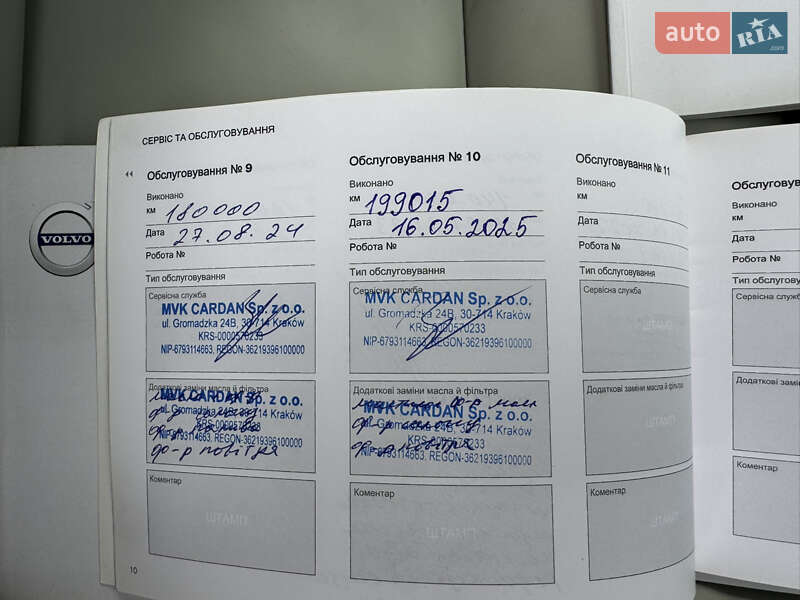 auto RIA .com
СЕРВІС ТА ОБСЛУГОВУВАННЯ
Обслуговування № 9
Виконано
км 180000
Дата 27.08.24
Робота №
Тип обслуговування
Сервісна служба
MVK CARDAN Sp. z o.o.
ul. Gromadzka 24B, 30-714 Kraków
KRS-0000570233
NIP-6793114663, REGON-36219396100000
Додаткові заміни масла й фільтра
MVK CARDAN Sp. z o.o.
ul. Gromadzka 24B, 30-714 Kraków
KRS-0000570233
NIP-6793114663, REGON-36219396100000
ф-р повітря
Коментар
ШТАМП
10
Обслуговування № 10
Виконано
км 199015
Дата 16.05.2025
Робота №
Тип обслуговування
Сервісна служба
MVK CARDAN Sp. z o.o.
ul. Gromadzka 24B, 30-714 Kraków
KRS-0000570233
NIP-6793114663, REGON-36219396100000
Додаткові заміни масла й фільтра
MVK CARDAN Sp. z o.o.
ul. Gromadzka 24B, 30-714 Kraków
KRS-0000570233
NIP-6793114663, REGON-36219396100000
ф-р повітря
Коментар
ШТАМП
Обслуговування № 11
Виконано
км
Дата
Робота №
Тип обслуговування
Сервісна служба
ШТАМП
Додаткові заміни масла й фільтра
ШТАМП
Коментар
ШТАМП
Обслуговуван
Виконано
км
Дата
Робота №
Тип обслуговування
Сервісна служба
Додаткові заміни
Коментар
VOLVO